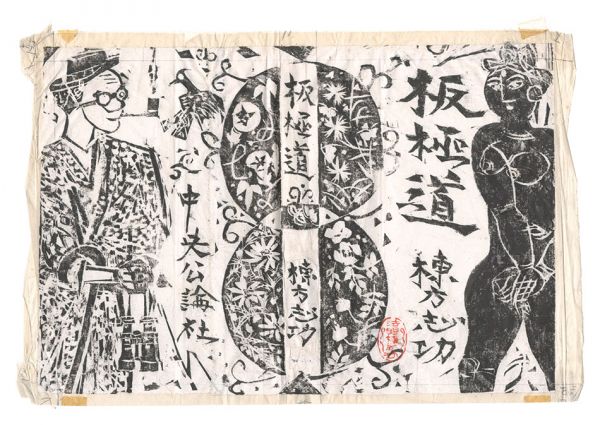 板極道
棟方志功
板極道
棟方志功
中央公論社